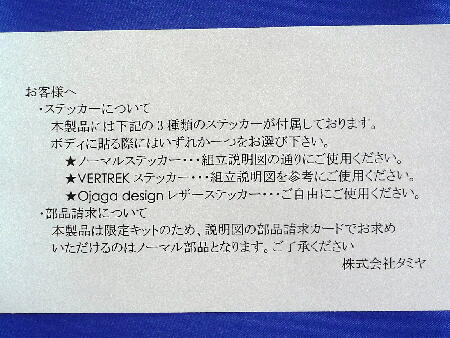 お客様へ
・ステッカーについて
本製品には下記の3種類のステッカーが付属しております。
ボディに貼る際にはいずれか一つをお選び下さい。
★ノーマルステッカー・・・組立説明図の通りにご使用ください。
★VERTREKステッカー・・・組立説明図を参考にご使用ください。
★Ojaga designレザーステッカー・・・ご自由にご使用ください。
・部品請求について
本製品は限定キットのため、説明図の部品請求カードでお求め
いただけるのはノーマル部品となります。ご了承ください
株式会社タミヤ